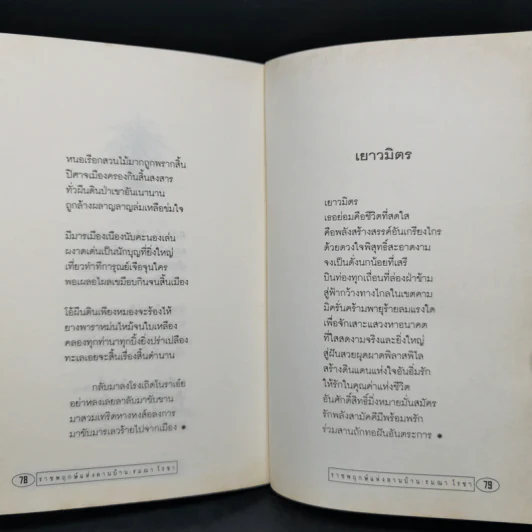 หนอเรือกสวนไม้มากถูกพรากสิ้น
ปิศาจเมืองครองกินสิ้นสงสาร
ทั่วผืนดินป่าเขาอันเนานาน
ถูกล้างผลาญลาญล่มเหลือข่มใจ
มีมารเมืองเนืองนับคะนองเล่น
ผงาดเด่นเป็นนักบุญที่ยิ่งใหญ่
เที่ยวทำทีการุณย์เจือจุนใคร
พอเผลอไผลเขมือบกินจนสิ้นเมือง
โอ้ผืนดินเพียงหมองจะร้องไห้
ยางพาราหม่นไหม้จนใบเหลือง
คลองทุกท่านาทุกบิ้งยิ่งเปล่าเปลือง
ทะเลเอยจะสิ้นเรื่องสิ้นตำนาน
กลับมาลงโรงเถิดโนราเอ๋ย
อย่าหลงเลยลาลับมาขับขาน
มาสวมเทริดหางหงส์องการ
มาขับมารเลวร้ายไปจากเมือง
78 ราชพฤกษ์แห่งลานบ้าน : รมณา โรชา
เยาวมิตร
เยาวมิตร
เธอย่อมคือชีวิตที่สดใส
คือพลังสร้างสรรค์อันเกรียงไกร
ด้วยดวงใจพิสุทธิ์สะอาดงาม
จงเป็นดั่งนกน้อยที่เสรี
บินท่องทุกเถื่อนที่ล่องฝ่าข้าม
สู่ฟ้ากว้างทางไกลในเขตคาม
มิครั่นคร้ามพายุร้ายลมแรงใด
เพื่อจักเสาะแสวงหาอนาคต
ที่ใสสดงามจริงและยิ่งใหญ่
สู่ฝันสวยผุดผาดพิลาสพิไล
สร้างดินแดนแห่งใจอันอิ่มรัก
ให้รักในคุณค่าแห่งชีวิต
อันศักดิ์สิทธิ์มิ่งหมายมั่นสมัคร
รักพลังสามัคคีมีพร้อมพรัก
ร่วมสานถักทอฝันอันตระการ
ราชพฤกษ์แห่งลานบ้าน : รมณา โรชา 79